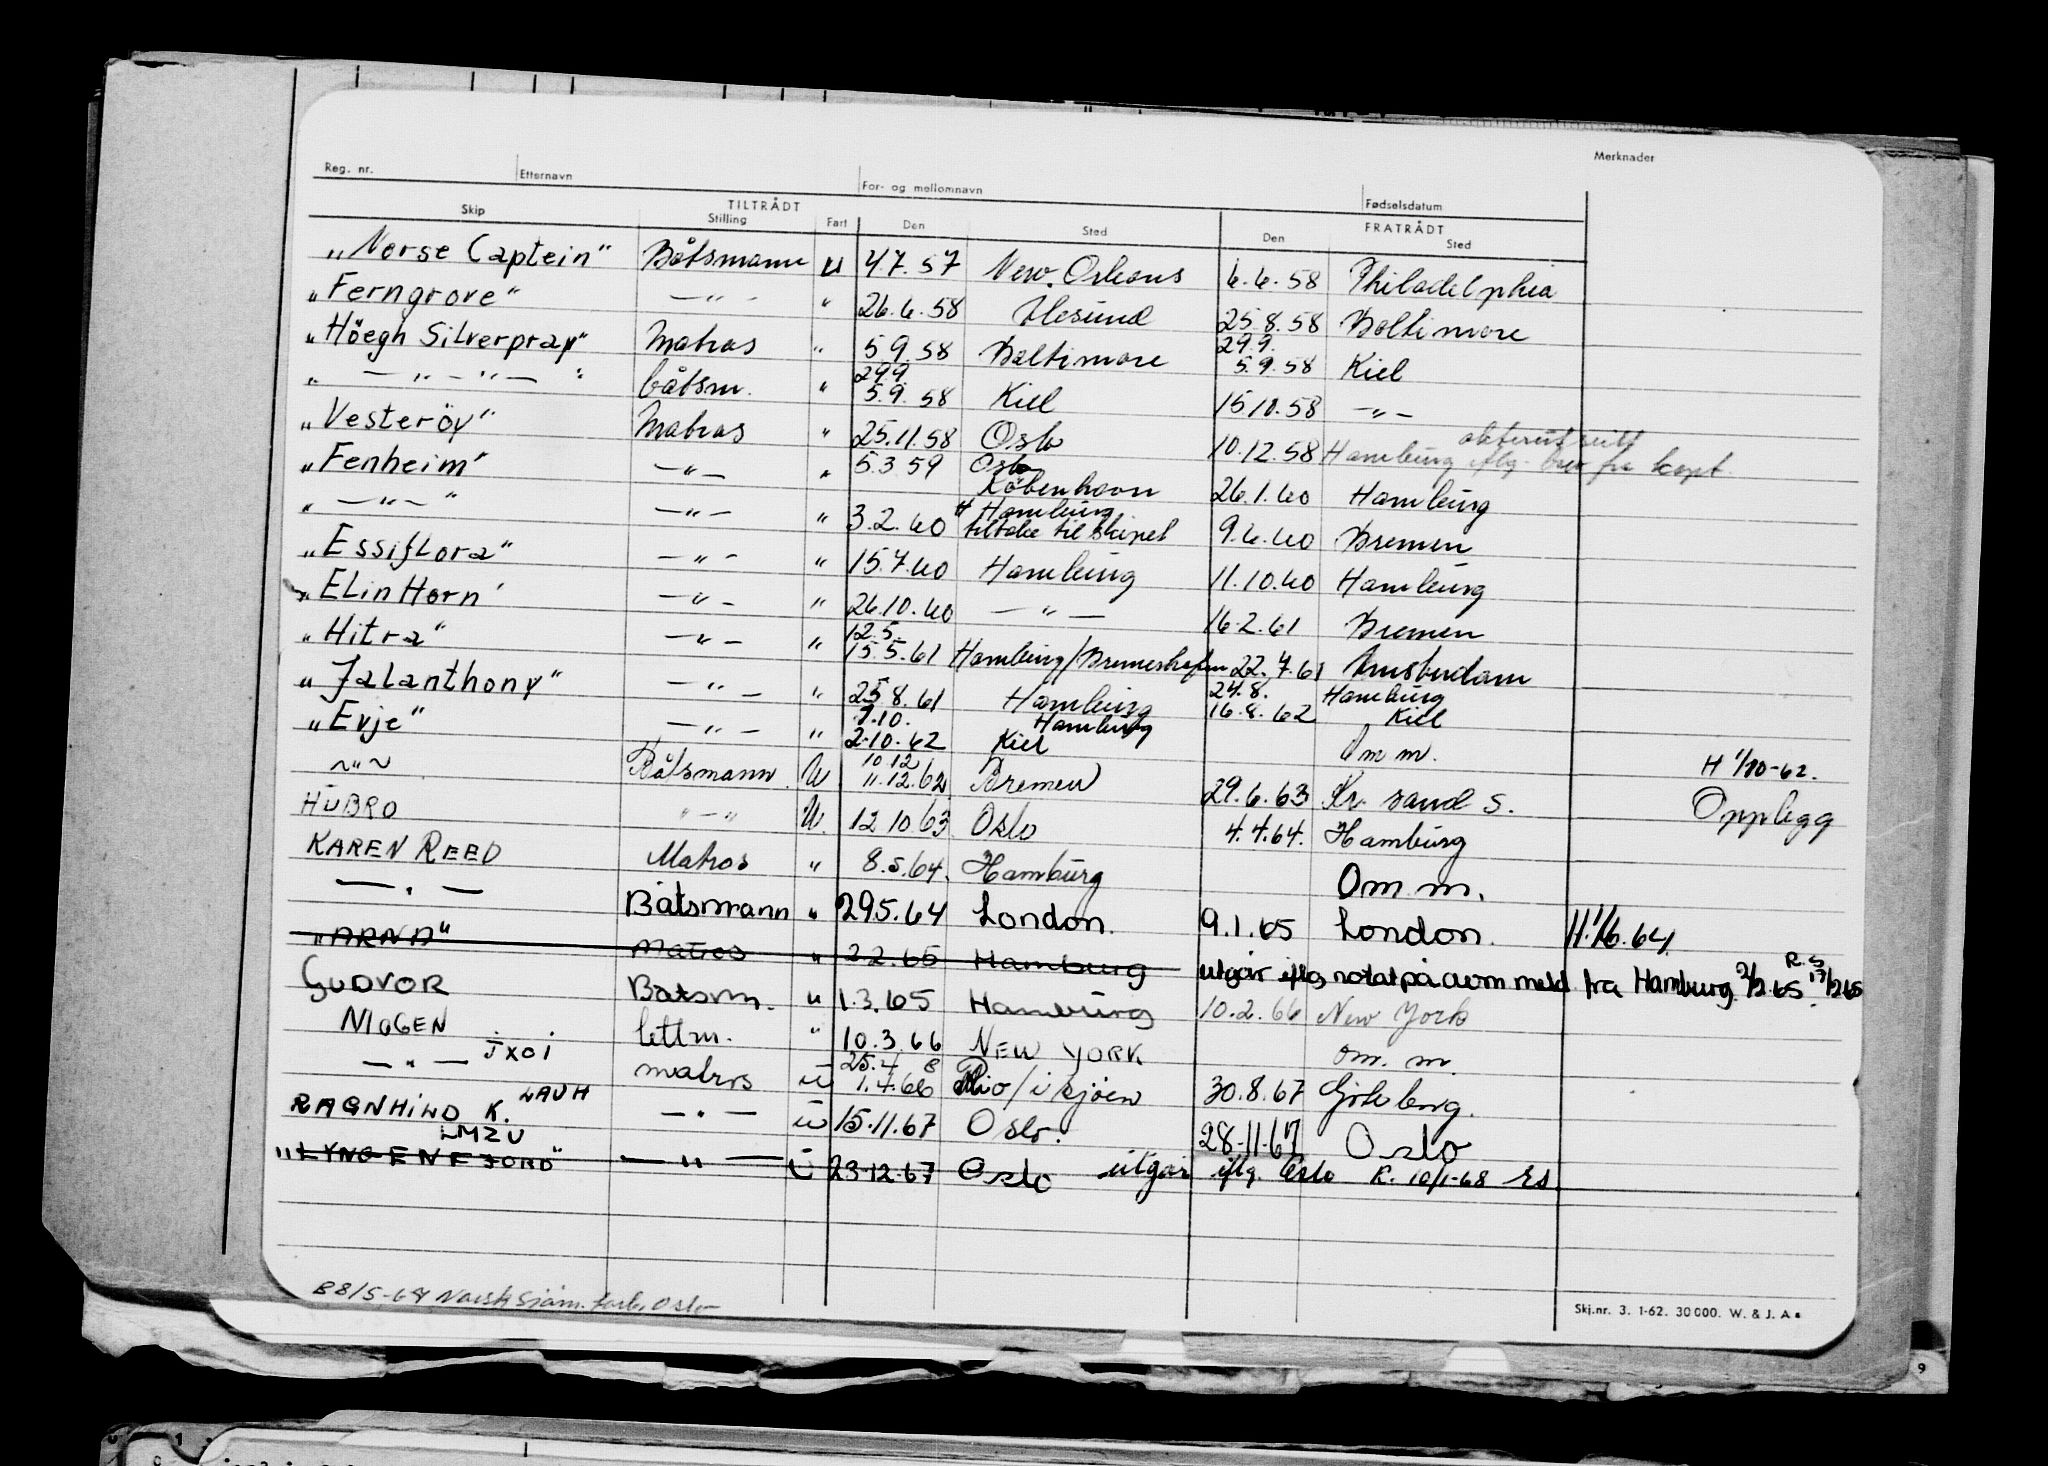 Merknader
Reg. nr. Etternavn For- og mellomnavn Fødselsdatum
TILTRÅDT FRATRÅDT
Skip Stilling Fart Den Sted Den Sted
"Norse Captein" Båtsmann u 4.7.57 New. Orleans 6.6.58 Philadelphia
"Ferngrove" — " - " 26.6.58 25.8.58 Baltimore
"Höegh Silverpray" Matros " 5 9.58 Baltimore 29.9. 5.9.58 Kiel
" — " — " — " båtsm. " 29.9. 5.9.58 Kiel 15 10.58 — " —
"Vesteröy" Matros " 25.11.58 Oslo 10.12.58 Hamburg iflg. brev fra kapt.
"Fenheim" — " — " 5.3.59 Oslo København 26.1.60 Hamburg
" — " — " — " — " 3.2.60 Hamburg 9.6.60 Bremen
"Essiflora" — " - " 15.7.60 Hamburg 11.10.60 Hamburg
"Elin Horn" — " — " 26.10.60 — " — 16.2.61 Bremen
"Hitra" — " — " 12.5. 15.5.61 Hamburg/Bremerhafen 22.7.61 Amsterdam
"Jalanthony" — " — " 25 8.61 Hamburg 24.8. 16.8.62 Hamburg Kiel
"Evje" — " — " 1.10. 2.10.62 Hamburg Kiel Om m. H 1/10-62.
~ " ~ Båtsmann U 10 12 11.12.62 Bremen 29.6.63 Kr. sand S. Opplegg
HUBRO " — " U. 12 10.63 Oslo 4.4.64. Hamburg
KAREN REED Matros " 8.5.64. Hamburg Om m.
— " — Båtsmann " 29.5.64 London. 9.1.65 London. H. 1/6.64.
"ARNA" Matros " 2.2.65 Hamburg utgår iflg. notat på avm meld fra Hamburg 2/2 65 R.S 17/2 65
GUDVOR Båtsm. " 1.3.65 Hamburg 10.2.66 New York
NIOGEN lettm. " 10.3.66 NEW YORK om. m.
— " — JXOI matros u 25.4 8 1.4.66 Rio/i sjøen 30.8.67 Göteberg.
RAGNHILD K. LAUH — " — u 15.11.67 Oslo. 28.11.67 Oslo
"LYNGENFJORD" LMZU — " — u 23.12.67 Oslo utgår iflg. Oslo R. 10/1-68 Es.
B8/5-64 Norsk Sjøm. forb. Oslo
Skj.nr. 3. 1-62. 30 000. W. & J. A s
9